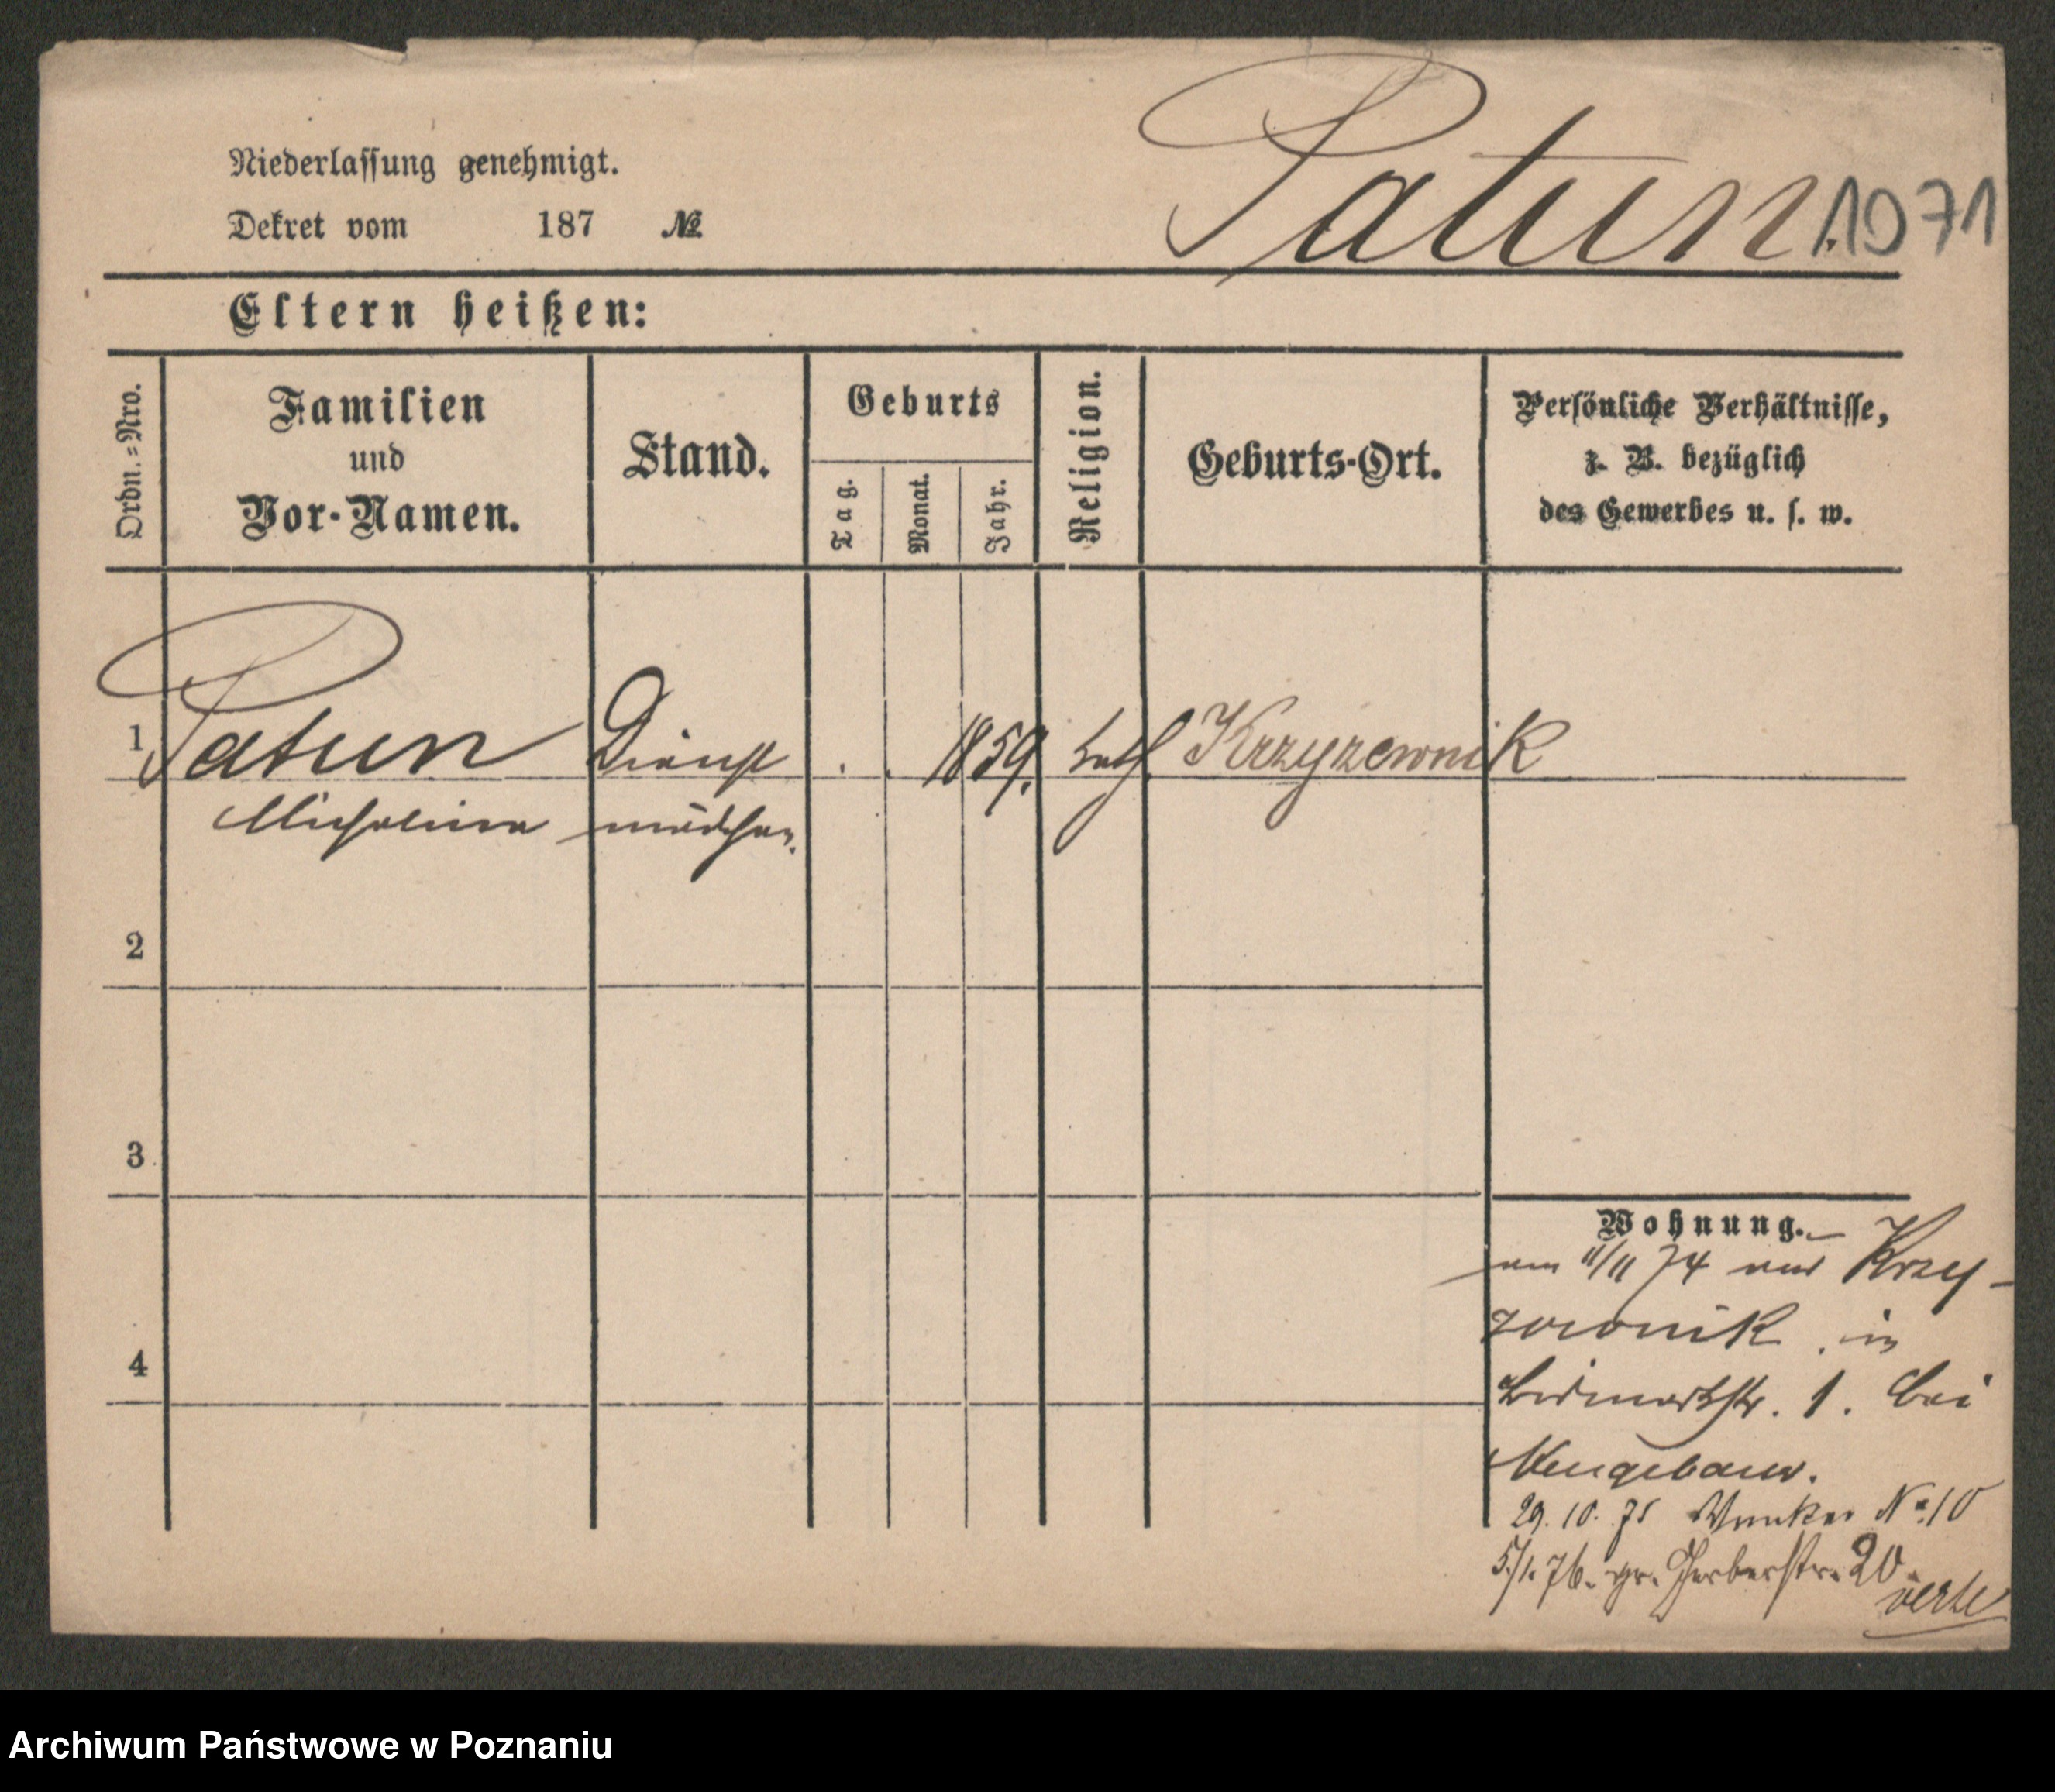 Patun.
1071
Niederlassung genehmigt.
Dekret vom 187 №
Eltern heißen:
Ordn.-Nro.
Familien
und
Vor-Namen.
Stand.
Geburts
Tag.
Monat.
Jahr.
Religion.
Geburts-Ort.
Persönliche Verhältnisse,
z. B. bezüglich
des Gewerbes u. s. w.
1 Patun Dienst . . 1859. kath. Krzyzewnik
Michalina mädchen.
2
3
4
Wohnung.
am 11/11 74 aus Krzy-
zownik. in
Bismarkstr. 1. bei
Neugebauer.
29. 10. 75 No. 10
5/1. 76. gr. Gerberstr. 20.
verte
Archiwum Państwowe w Poznaniu